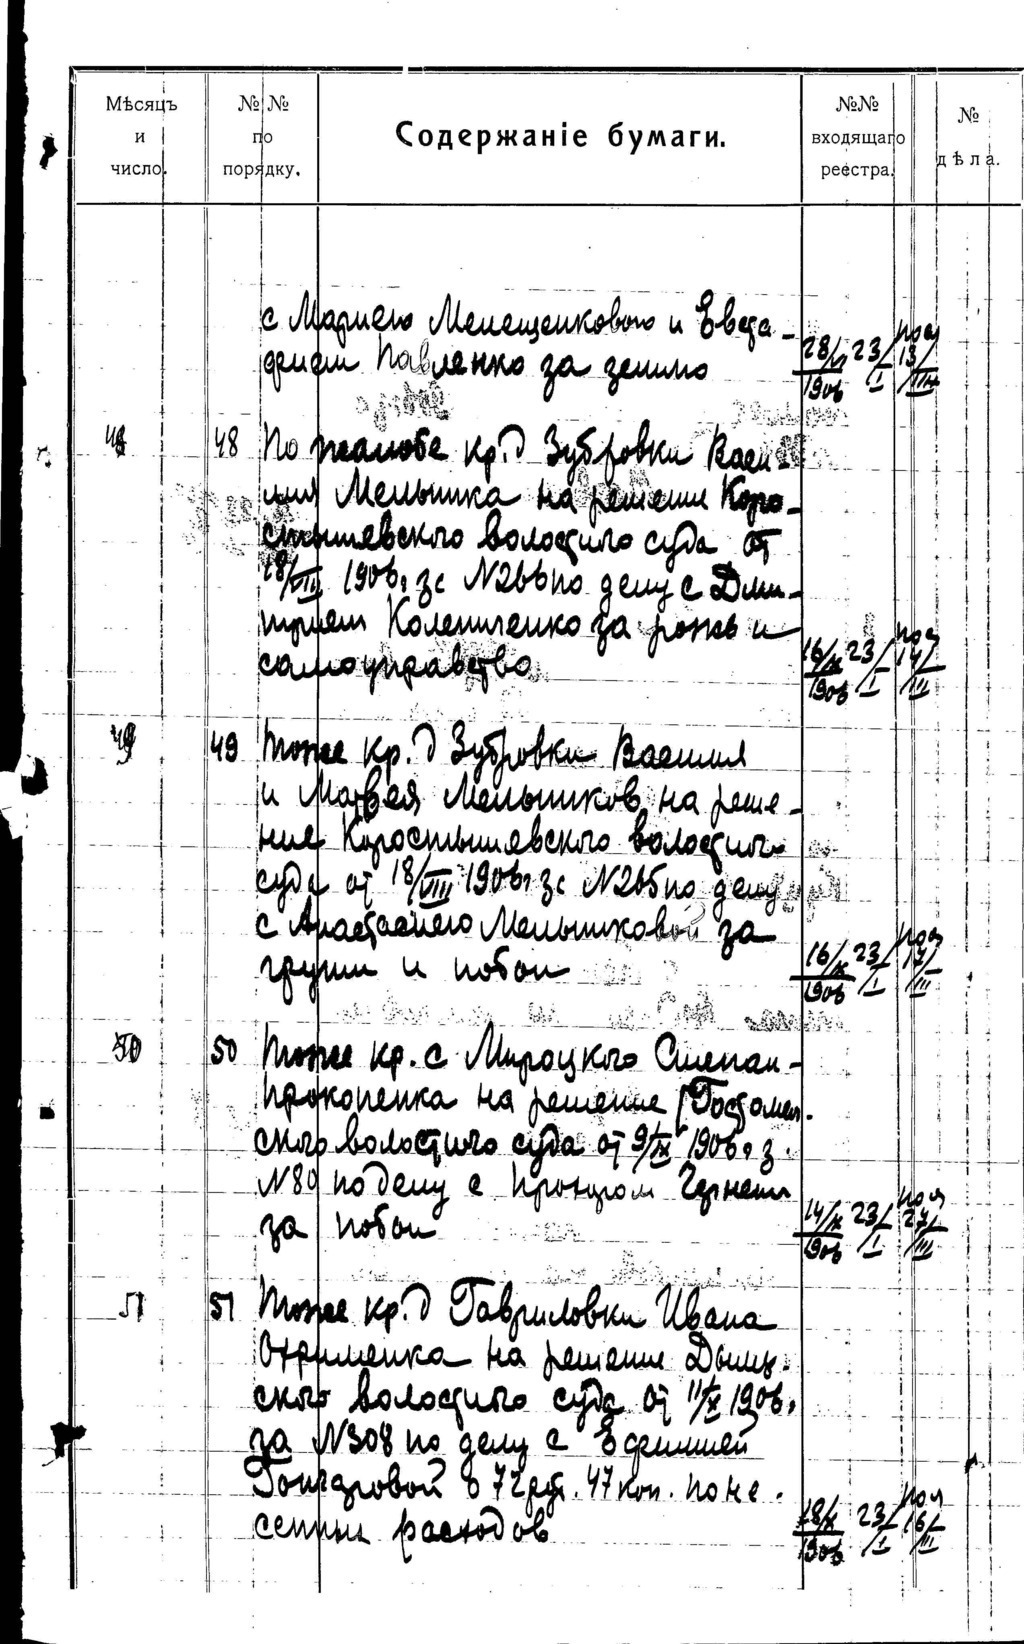 Мѣсяцъ
и
число.
№ №
по
порядку.
Содержаніе бумаги.
№№
входящаго
реестра.
№
дѣла.
с Мариею Мелещенковою и Евста-
фием Павленко за землю
28/VI 1906 23/I 13/III
48 48 По жалобе кр. д Зубровки Васи-
лия Мельника на решение Коро-
стышевского волостного суда от
18/VIII 1906 г за N 266 по делу с Дми-
трием Колениченко за рожь и
самоуправство
16/X 1906 23/I 17/III
49 49 Тоже кр. д Зубровки Василия
и Матвея Мельников на реше-
ние Коростышевского волостного
суда от 18/VIII 1906 г за N 265 по делу
с Анастасиею Мельниковой за
груши и побои
16/X 1906 23/I 17/III
50 50 Тоже кр. с Мироцкого Степан
Прокопенка на решение Гостомел-
ского волостного суда от 9/IX 1906 г з.
N 80 по делу с Чернеш
за побои
14/X 1906 23/I 27/III
51 51 Тоже кр. д Гавриловки Ивана
Охрименка на решение Дымер-
ского волостного суда от 11/X 1906.
за N 308 по делу с Ефимией
Гончаровой о 72 руб. 47 коп. поне-
сенных расходов
18/X 1906 23/I 16/III